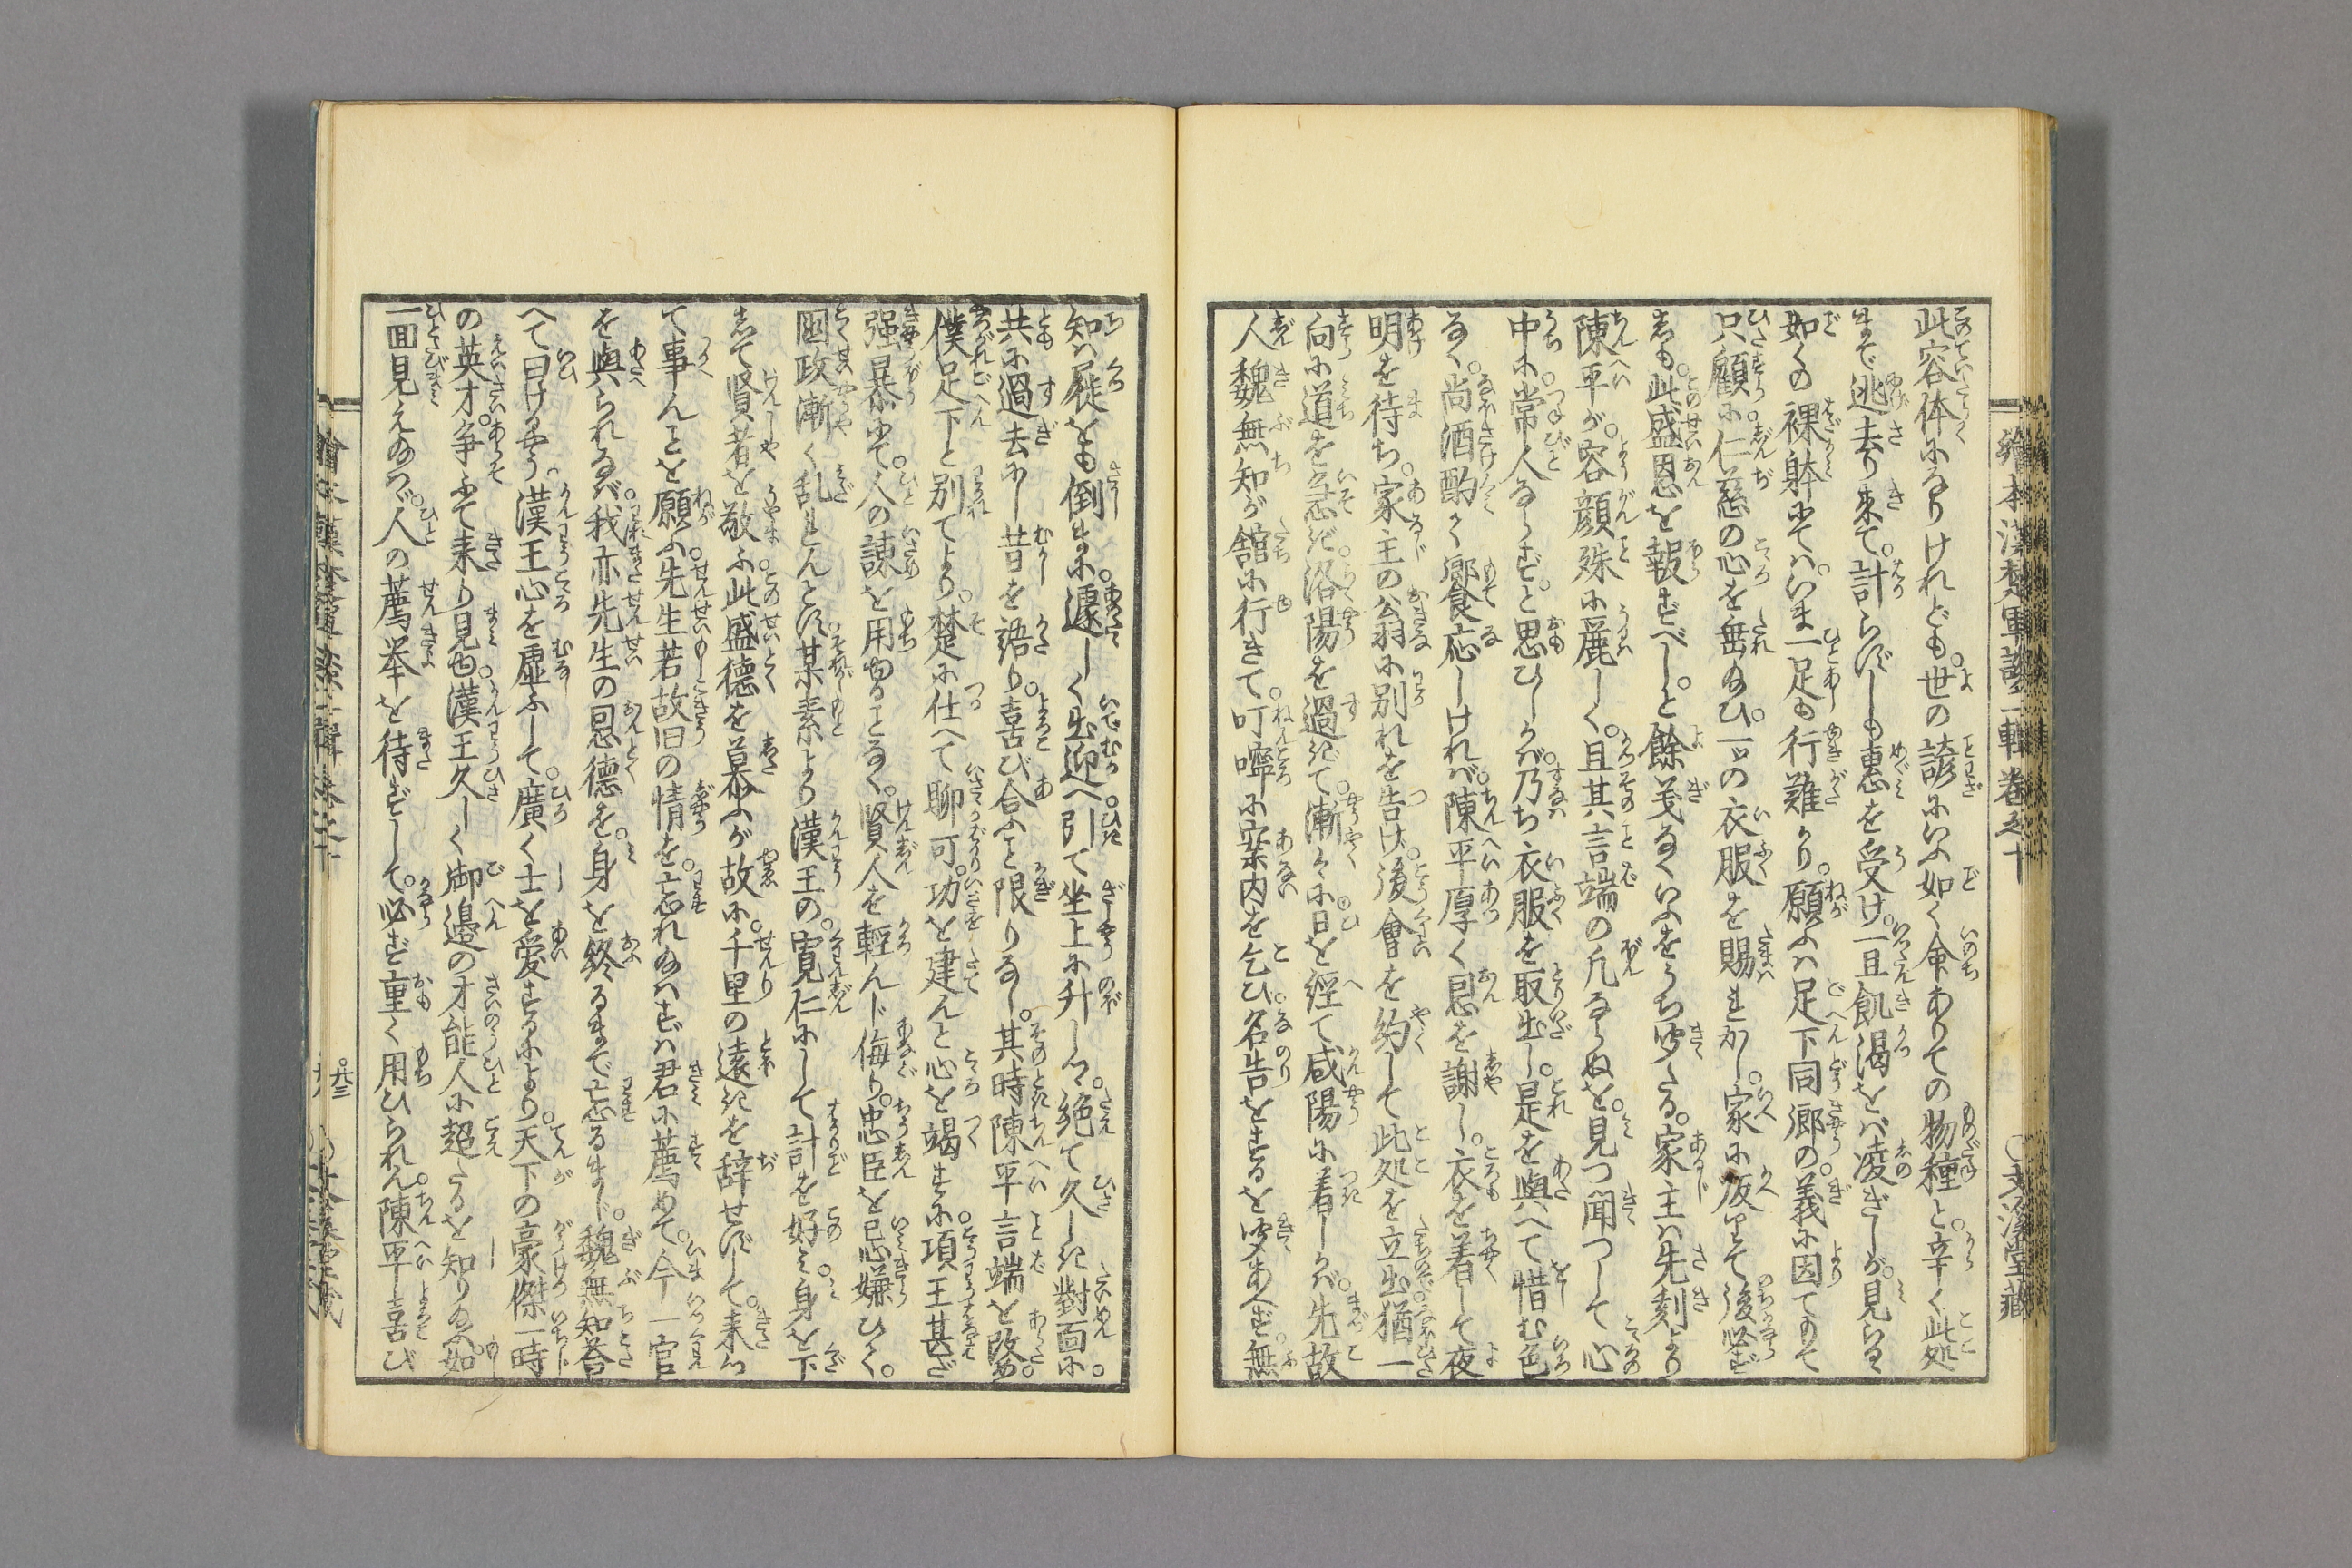 此容体になりけれども。世の諺にいふ如く命ありての物種と。辛く此処
まで逃去り来て。計らずしも惠を受け。一旦飢渇をバ凌ぎしが。見らるゝ
如くの裸躰にてハ。いま一足も行難かり。願ふハ足下同郷の義に因てあて
只顧に。仁慈の心を垂給ひ。一ツの衣服を賜れかし。家に皈りて後必ず
しも。此盛恩を報ずべし。と餘義なくいふをうち聞たる。家主ハ先刻より
陳平が。容顔殊に麗しく。且其言端の凡ならぬを。見つ聞つして心
中に。常人ならず。と思ひしかバ。乃ち衣服を取出し。是を與へて惜む色
なく。尚酒酌く郷食応しけれバ。陳平厚く恩を謝し。衣を着して夜
明を待ち。家王の公翁に別れを告げ。後會を約して此処を立出。猶一
向に道を急ぎ。洛陽を過ぎて。漸々に。日を経て咸陽に着しかバ。先故
人魏無知が舘に行きて。叮嚀に案内を乞ひ。名告をするを聞あへず。無
知ハ屣をも倒まに。遽しく出迎へ。引て坐上に升しつゝ。絶て久しき對面に。
共に過去にし昔を語り。喜び合ふこと限りなし。其時陳平言端を改め。
僕足下と別てより。楚に仕へて聊可。功を建んと心を竭すに。項王甚だ
强暴にて。人の諫を用ゆることなく。賢人を輕んじ侮り。忠臣を忌嫌ひて。
國政漸く乱れんとす。某素より漢王の。寛仁にして計を好み。身を下
して賢者を敬ふ。此盛德を慕ふが故に。千里の遠きを辞せずして。来り
て事んことを願ふ。先生若故旧の情を。忘れ給はずバ君に薦めて。今一官
を與られなバ。我亦先生の恩德を。身を終るまで忘るまじ。魏無知荅
へて曰けるやう。漢王心を虚ふして。廣く士を愛するにより。天下の豪傑一時
の英才。争ふて来り見ゆ。漢王久しく御邉の才能人に超たるを知り給ふ。如
一面見え給はゞ。人の薦举を待ずして。必ず重く用ひられん。陳平喜び
繪本漢楚軍談二輯卷之十
○文溪堂藏